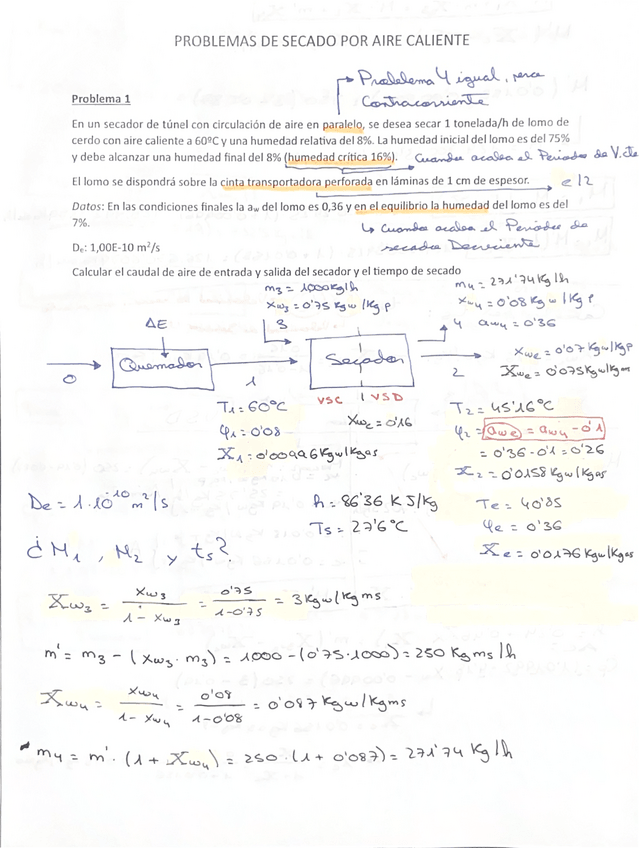 PROBLEMAS DE SECADO POR AIRE CALIENTE
Problema 4 igual, pero
Contracorriente
Problema 1
En un secador de túnel con circulación de aire en paralelo, se desea secar 1 tonelada/h de lomo de
cerdo con aire caliente a 60ºC y una humedad relativa del 8%. La humedad inicial del lomo es del 75%
y debe alcanzar una humedad final del 8% (humedad crítica 16%). Cuando acaba el Periodo de V.cte
El lomo se dispondrá sobre la cinta transportadora perforada en láminas de 1 cm de espesor. e/2
Datos: En las condiciones finales la aw del lomo es 0,36 y en el equilibrio la humedad del lomo es del
7%.
↳ Cuando acaba el Periodo de
secado Decreciente
De: 1,00E-10 m²/s
Calcular el caudal de aire de entrada y salida del secador y el tiempo de secado
m3 = 1000Kg/h
xw3 = 0'75 Kgw/Kgp
m4 = 271'74 Kg/h
xw4 = 0'08 Kgw/Kgp
ΔE
3
4 aw4 = 0'36
Quemador
Secador
0
1
2
xwe = 0'07 Kgw/Kgp
Xwe = 0'075 Kgw/Kgms
VSC | VSD
T1 = 60ºC
φ1 = 0'08
X1 = 0'00996 Kgw/Kgas
xwc = 0'16
T2 = 45'16ºC
φ2 = awe = aw4 - 0'1
= 0'36 - 0'1 = 0'26
X2 = 0'0158 Kgw/Kgas
De = 1·10⁻¹⁰ m²/s
h = 86'36 KJ/Kg
Ts = 27'6ºC
Te = 40'85
φe = 0'36
Xe = 0'0176 Kgw/Kgas
¿M1, M2 y ts?
Xw3 = xw3 / (1 - xw3) = 0'75 / (1-0'75) = 3 Kgw/Kgms
m' = m3 - (xw3 · m3) = 1000 - (0'75·1000) = 250 Kgms/h
Xw4 = xw4 / (1 - xw4) = 0'08 / (1-0'08) = 0'087 Kgw/Kgms
m4 = m' · (1 + Xw4) = 250 · (1 + 0'087) = 271'74 Kg/h